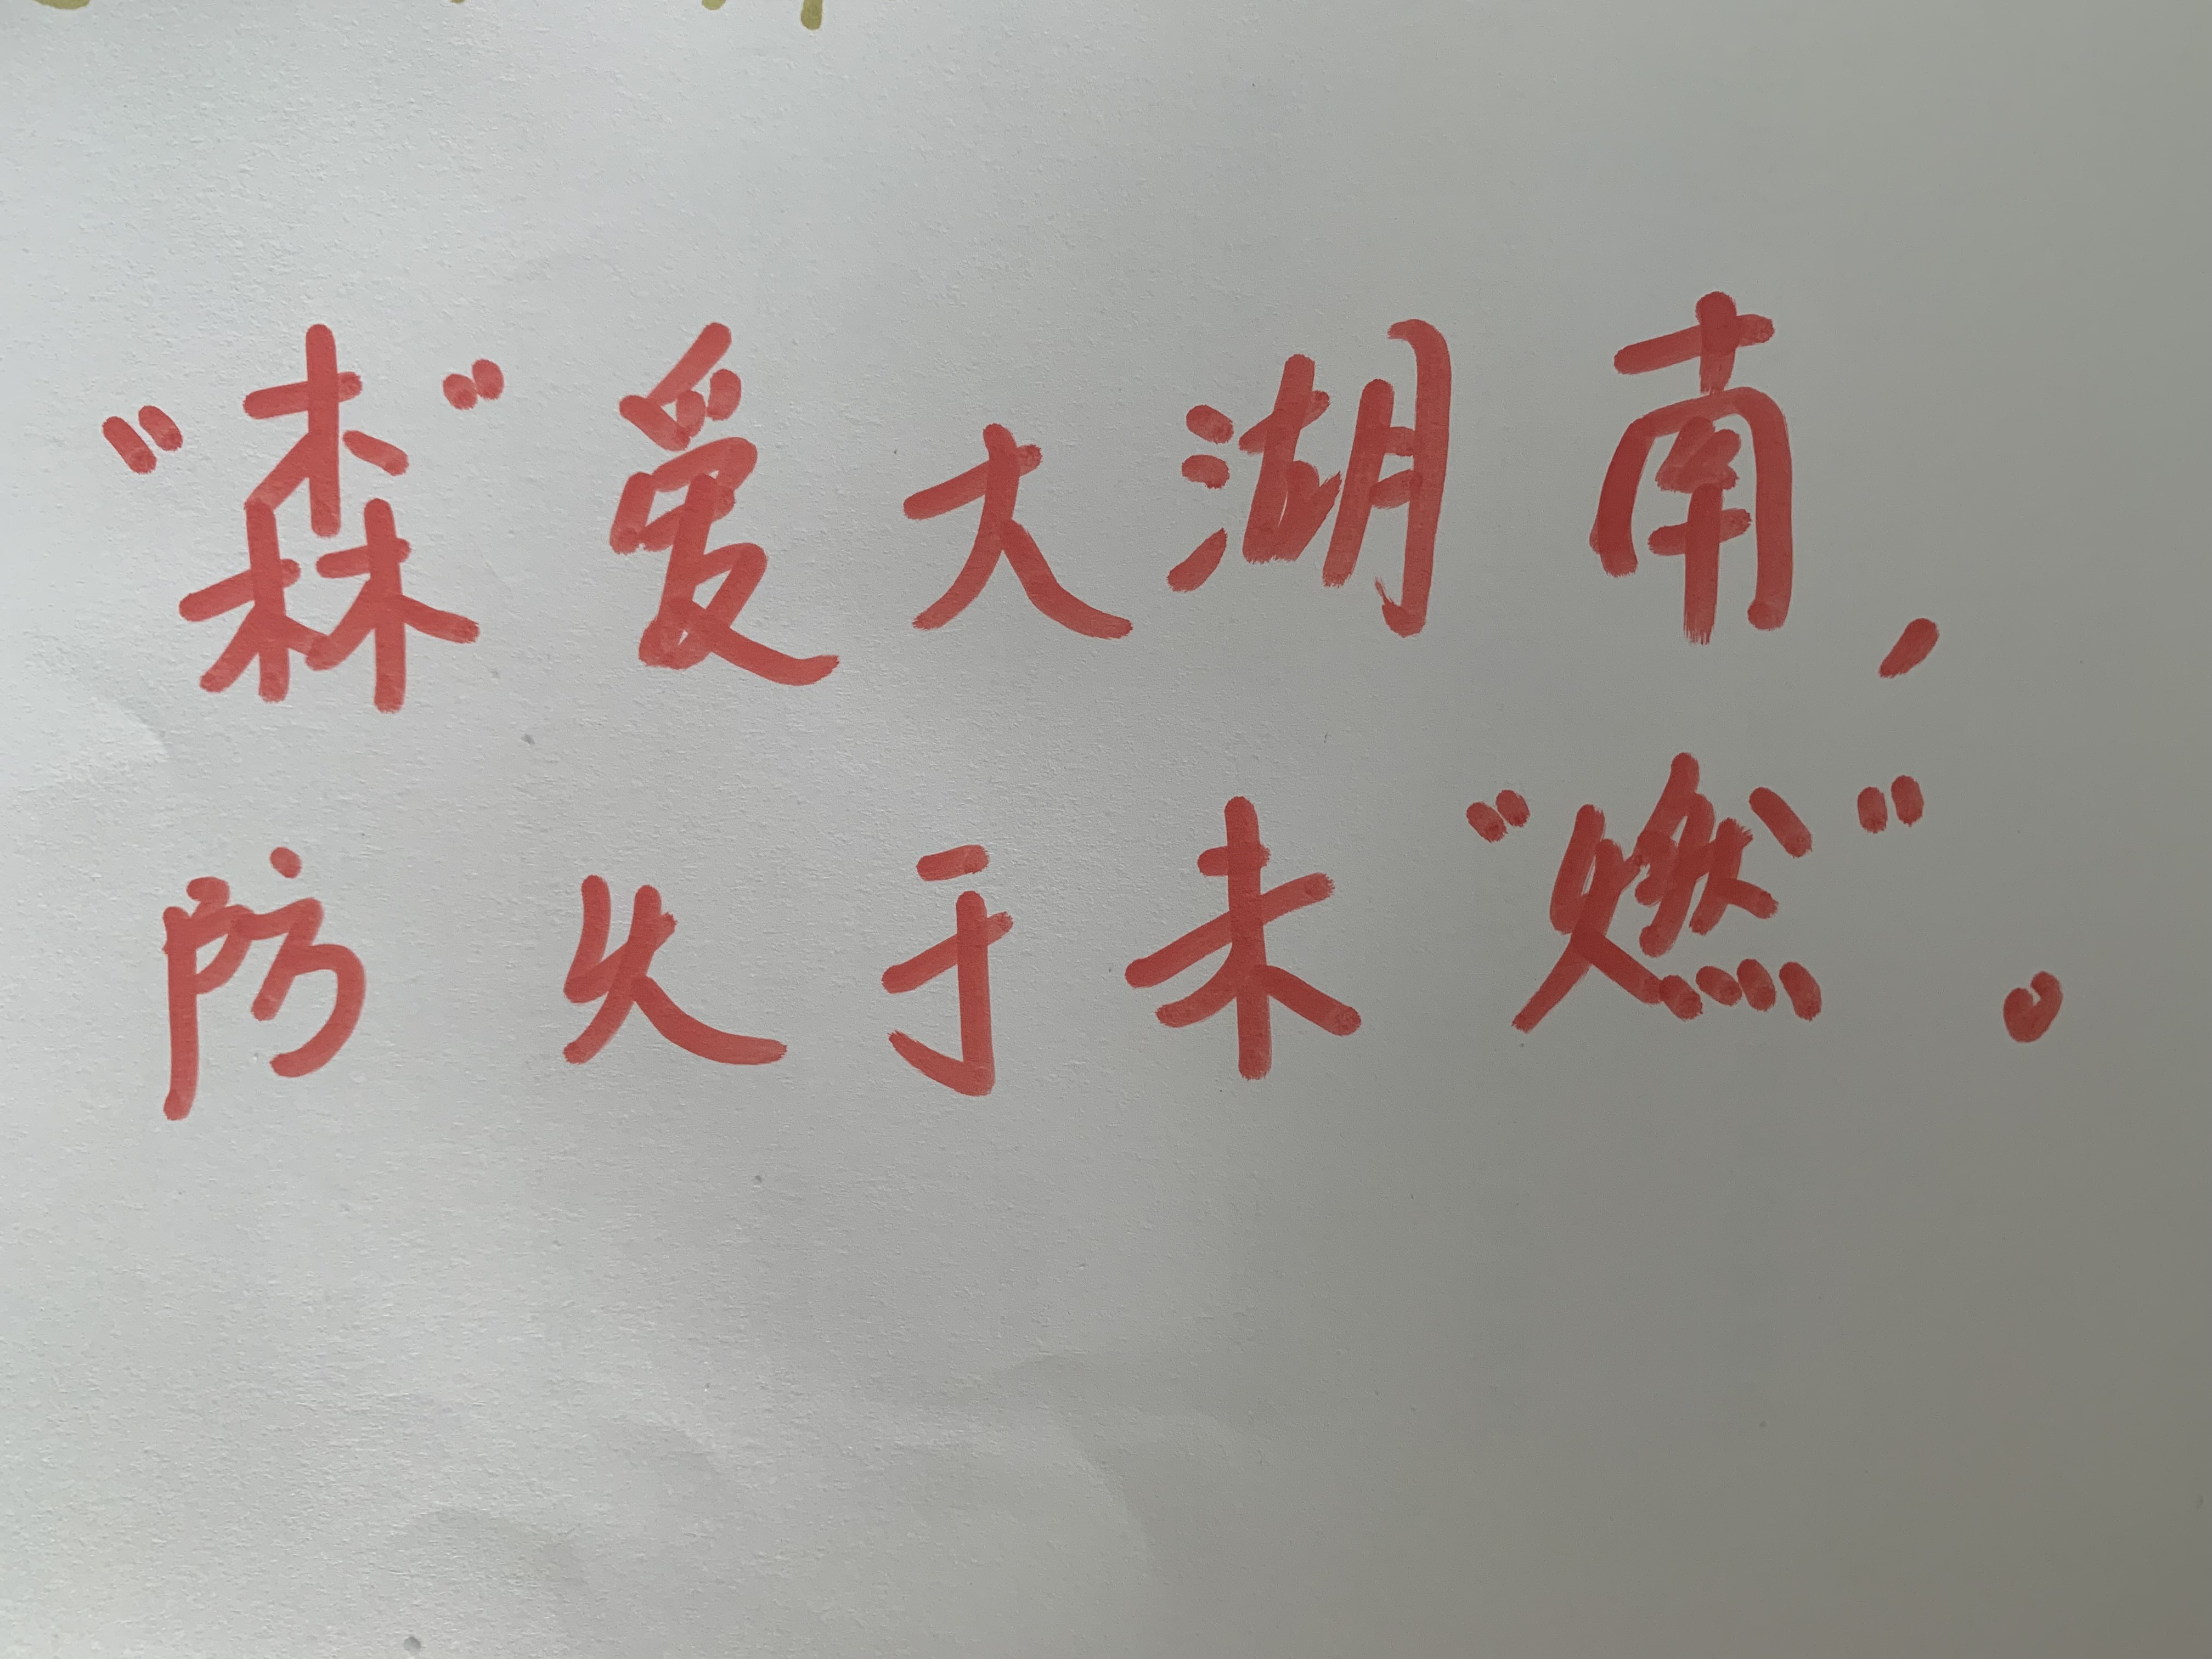 “森”爱大湖南，
防火于未“燃”。